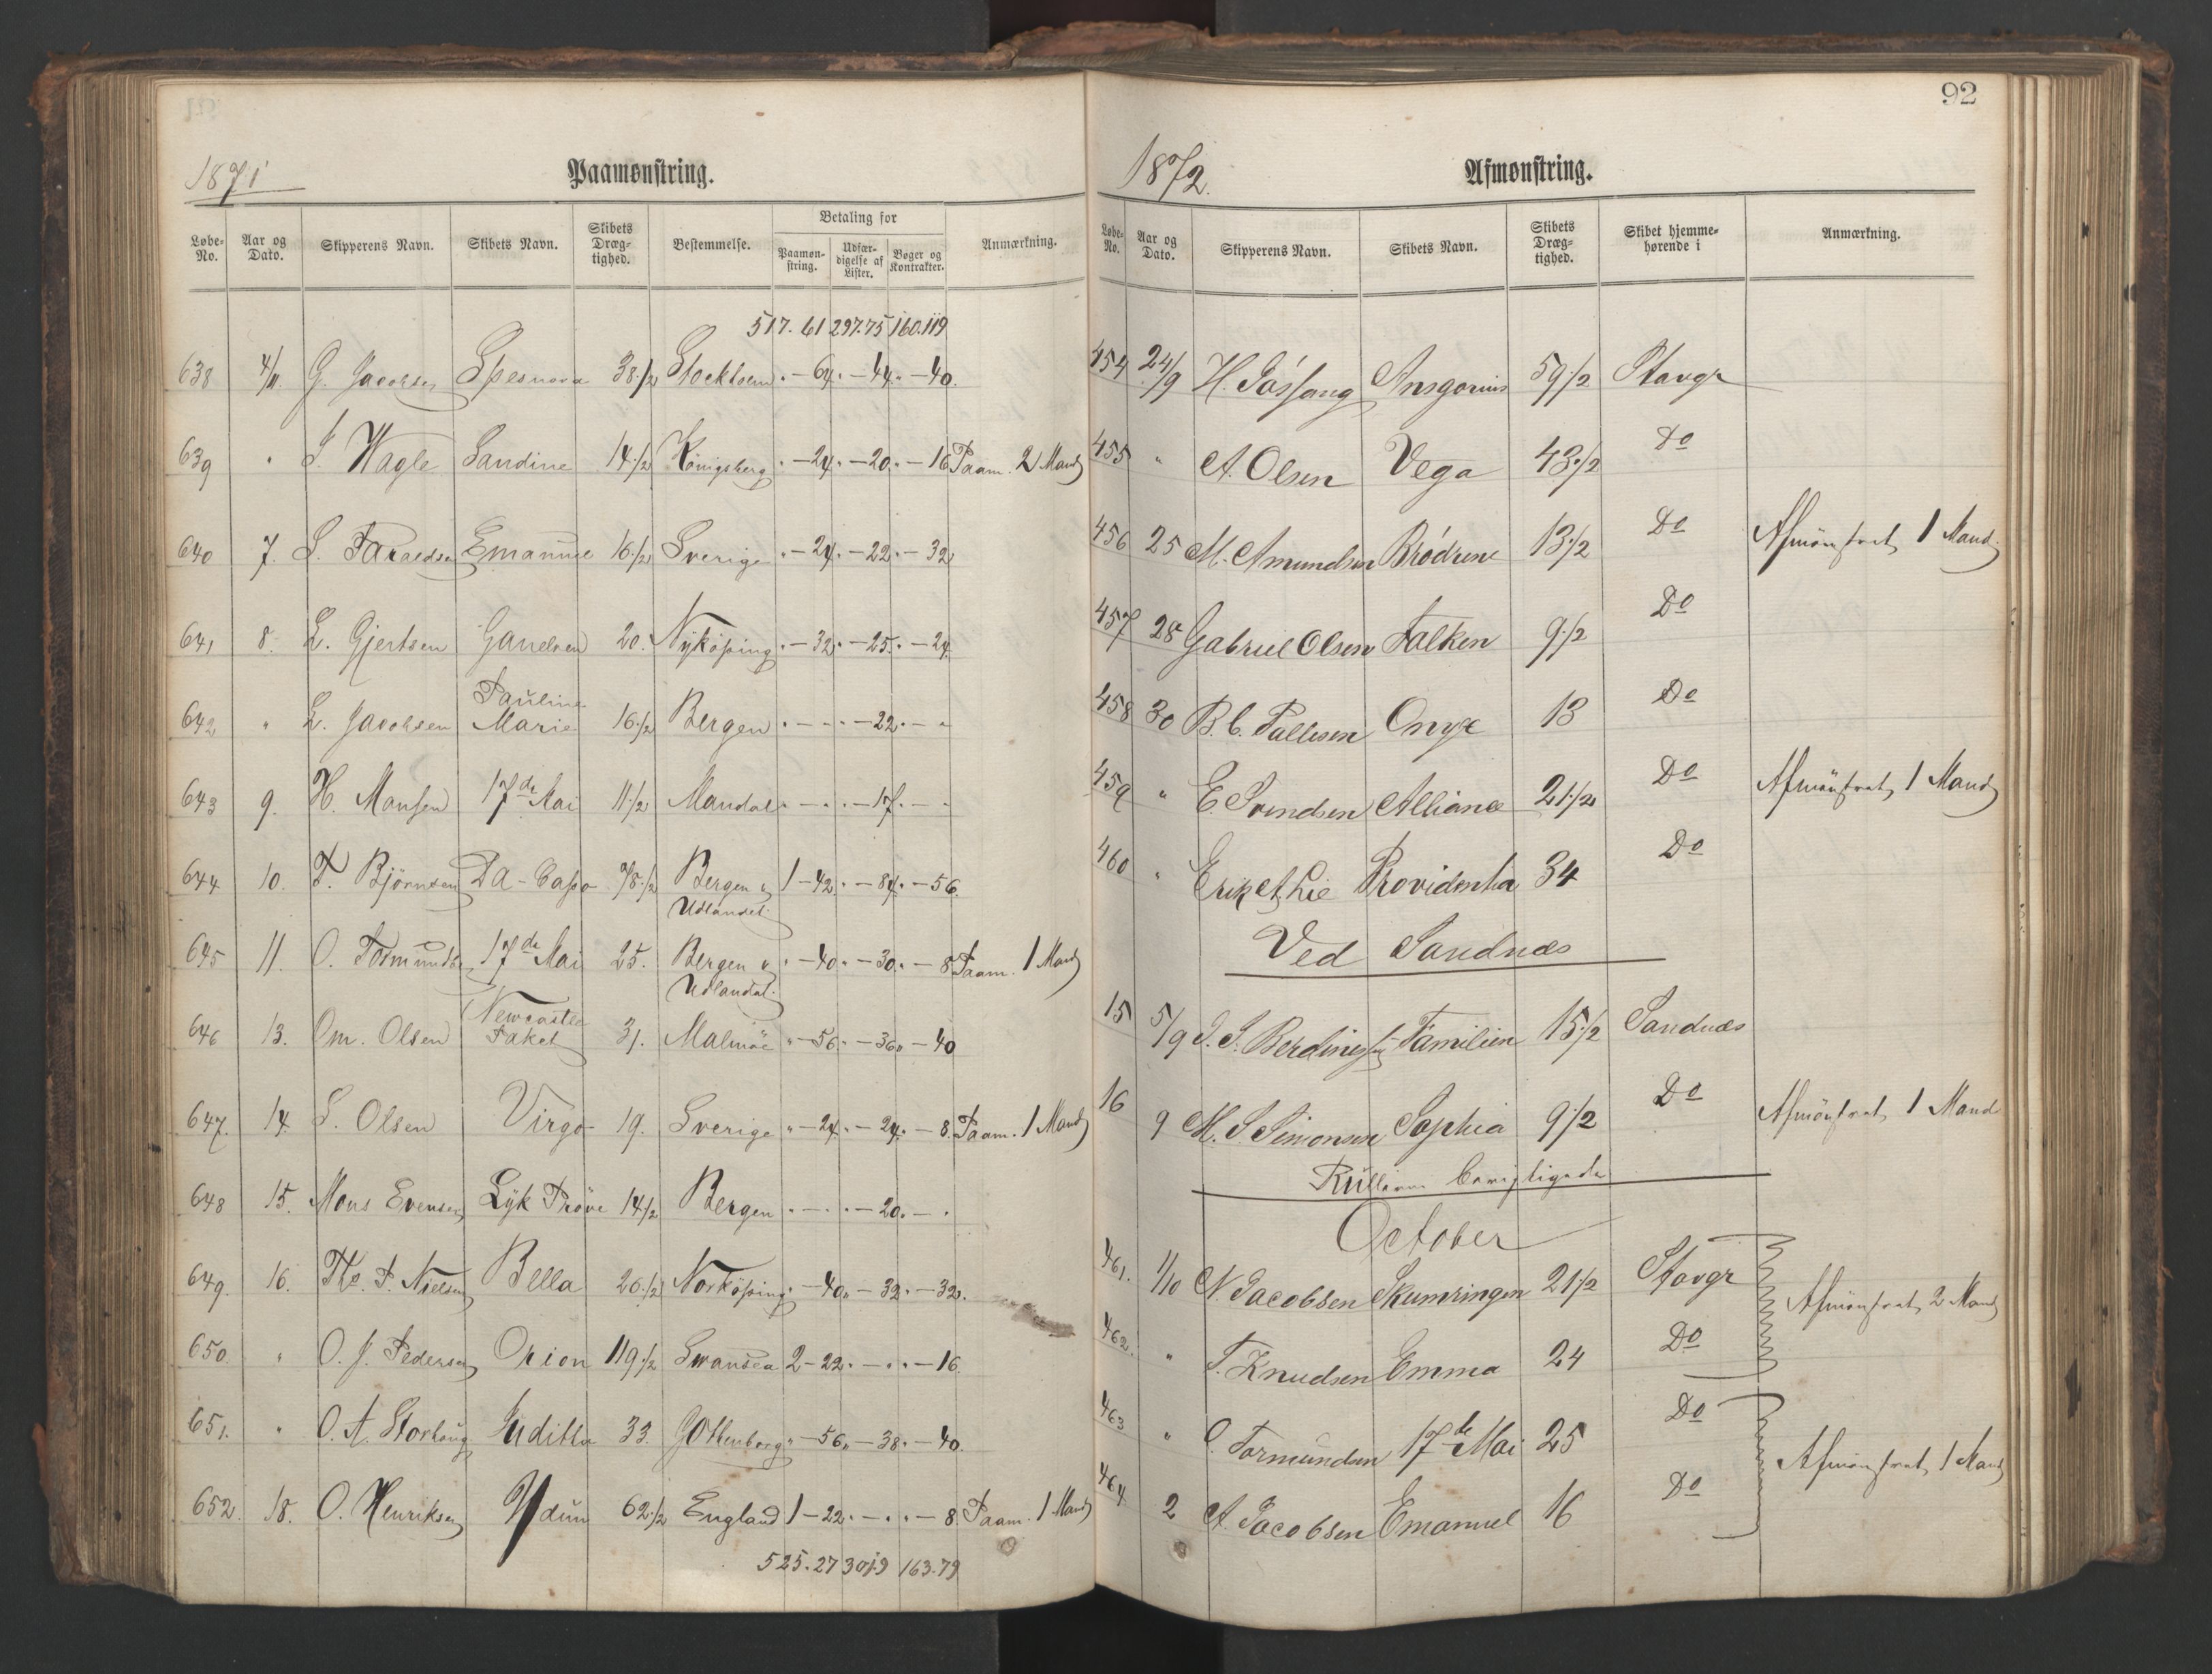 1871
Paamønstring.
Løbe-No. Aar og Dato. Skipperens Navn. Skibets Navn. Skibets Dræg-tighed. Bestemmelse. Betaling for Paamøn-string. Udfær-digelse af Lister. Bøger og Kontrakter. Anmærkning.
517. 61 297.75 160.119
638 4/11. G. Jacobsen Spesnova 38 1/2 Stockholm " - 64 " - 44 " - 40.
639 " J. Wagle Sandine 14 1/2 Königsberg " - 24 " - 20 " - 16 Paam. 2 Mand
640 7. S. Emanuel 16 1/2 Sverige " - 24 " - 22 " - 32
641 8. L. Gjertsen 20. Nyköping " - 32 " - 25 " - 24
642 " L. Jacobsen Pauline Marie 16 1/2 Bergen " - " " - 22 " - "
643 9. H. Hansen 17de Mai 11 1/2 Mandal " - " " - 17 " - "
644 10. T. Björnsen Da-Capo 78 1/2 Bergen & Udlandet. 1 - 42 " - 84 " - 56.
645 11. O. 17de Mai 25. Bergen & Udlandet. " - 40 " - 30 " - 8 Paam. 1 Mand
646 13. Om. Olsen Newcastle Paket 31. Malmöe " - 56 " - 36 " - 40
647. 14. S. Olsen Virgo 19. Sverige " - 24 " - 24 " - 8. Paam. 1 Mand
648 15. Mons Evensen Lyk Pröve 14 1/2 Bergen " - " " - 20 " - "
649. 16. P. Nielsen Bella 26 1/2 Norköping " - 40 " - 32 " - 32.
650. " O. J. Pedersen Orion 119 1/2 Swansea 2 - 22 " - " " - 16.
651. " O. A. Storhaug Juditha 33. Gottenborg " - 56 " - 38 " - 40.
652. 18. O. Henriksen Ydun 62 1/2 England 1 - 22 " - " " - 8. Paam. 1 Mand
525.27 301.9 163.79
92
1872.
Afmønstring.
Løbe-No. Aar og Dato. Skipperens Navn. Skibets Navn. Skibets Dræg-tighed. Skibet hjemme-hørende i Anmærkning.
454 24/9 H. Ansgarius 59 1/2 Stavgr
455 " A. Olsen Vega 43 1/2 Do
456 25 M. Amundsen Brödrene 13 1/2 Do Afmönstret 1 Mand
457 28 Gabriel Olsen Falken 9 1/2 Do
458 30 B. C. Pallesen Onyx 13 Do
459 " E. Svendsen Alliance 21 1/2 Do Afmönstret 1 Mand
460 " Erik A. Lie Providentia 34 Do
Ved Sandnæs
15 5/9 Familien 15 1/2 Sandnæs
16 9 M. S. Simonsen Sophia 9 1/2 Do Afmönstret 1 Mand
Rullerne berigtigede
October
461. 1/10 N. Jacobsen Skumringen 21 1/2 Stavgr Afmönstret 2 Mand
462. " T. Knudsen Emma 24 Do
463 " O. Tormundsen 17de Mai 25 Do Afmönstret 1 Mand
464 2 A. Jacobsen Emanuel 16 Do